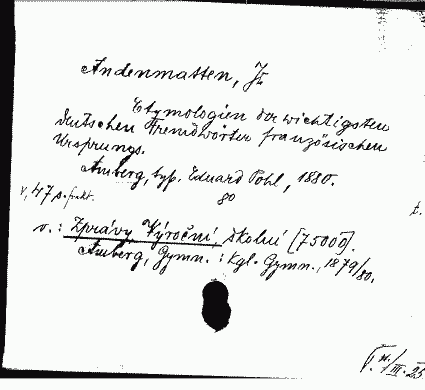 Andenmatten, Fr.
Etymologien der wichtigsten
deutschen Fremdwörter französischen
Ursprungs.
Amberg, typ. Eduard Pohl, 1880.
80
V, 47 s. frakt.
t.
v.: Zprávy Výroční školní [75000].
Amberg, Gymn.: Kgl. Gymn., 1879/80.